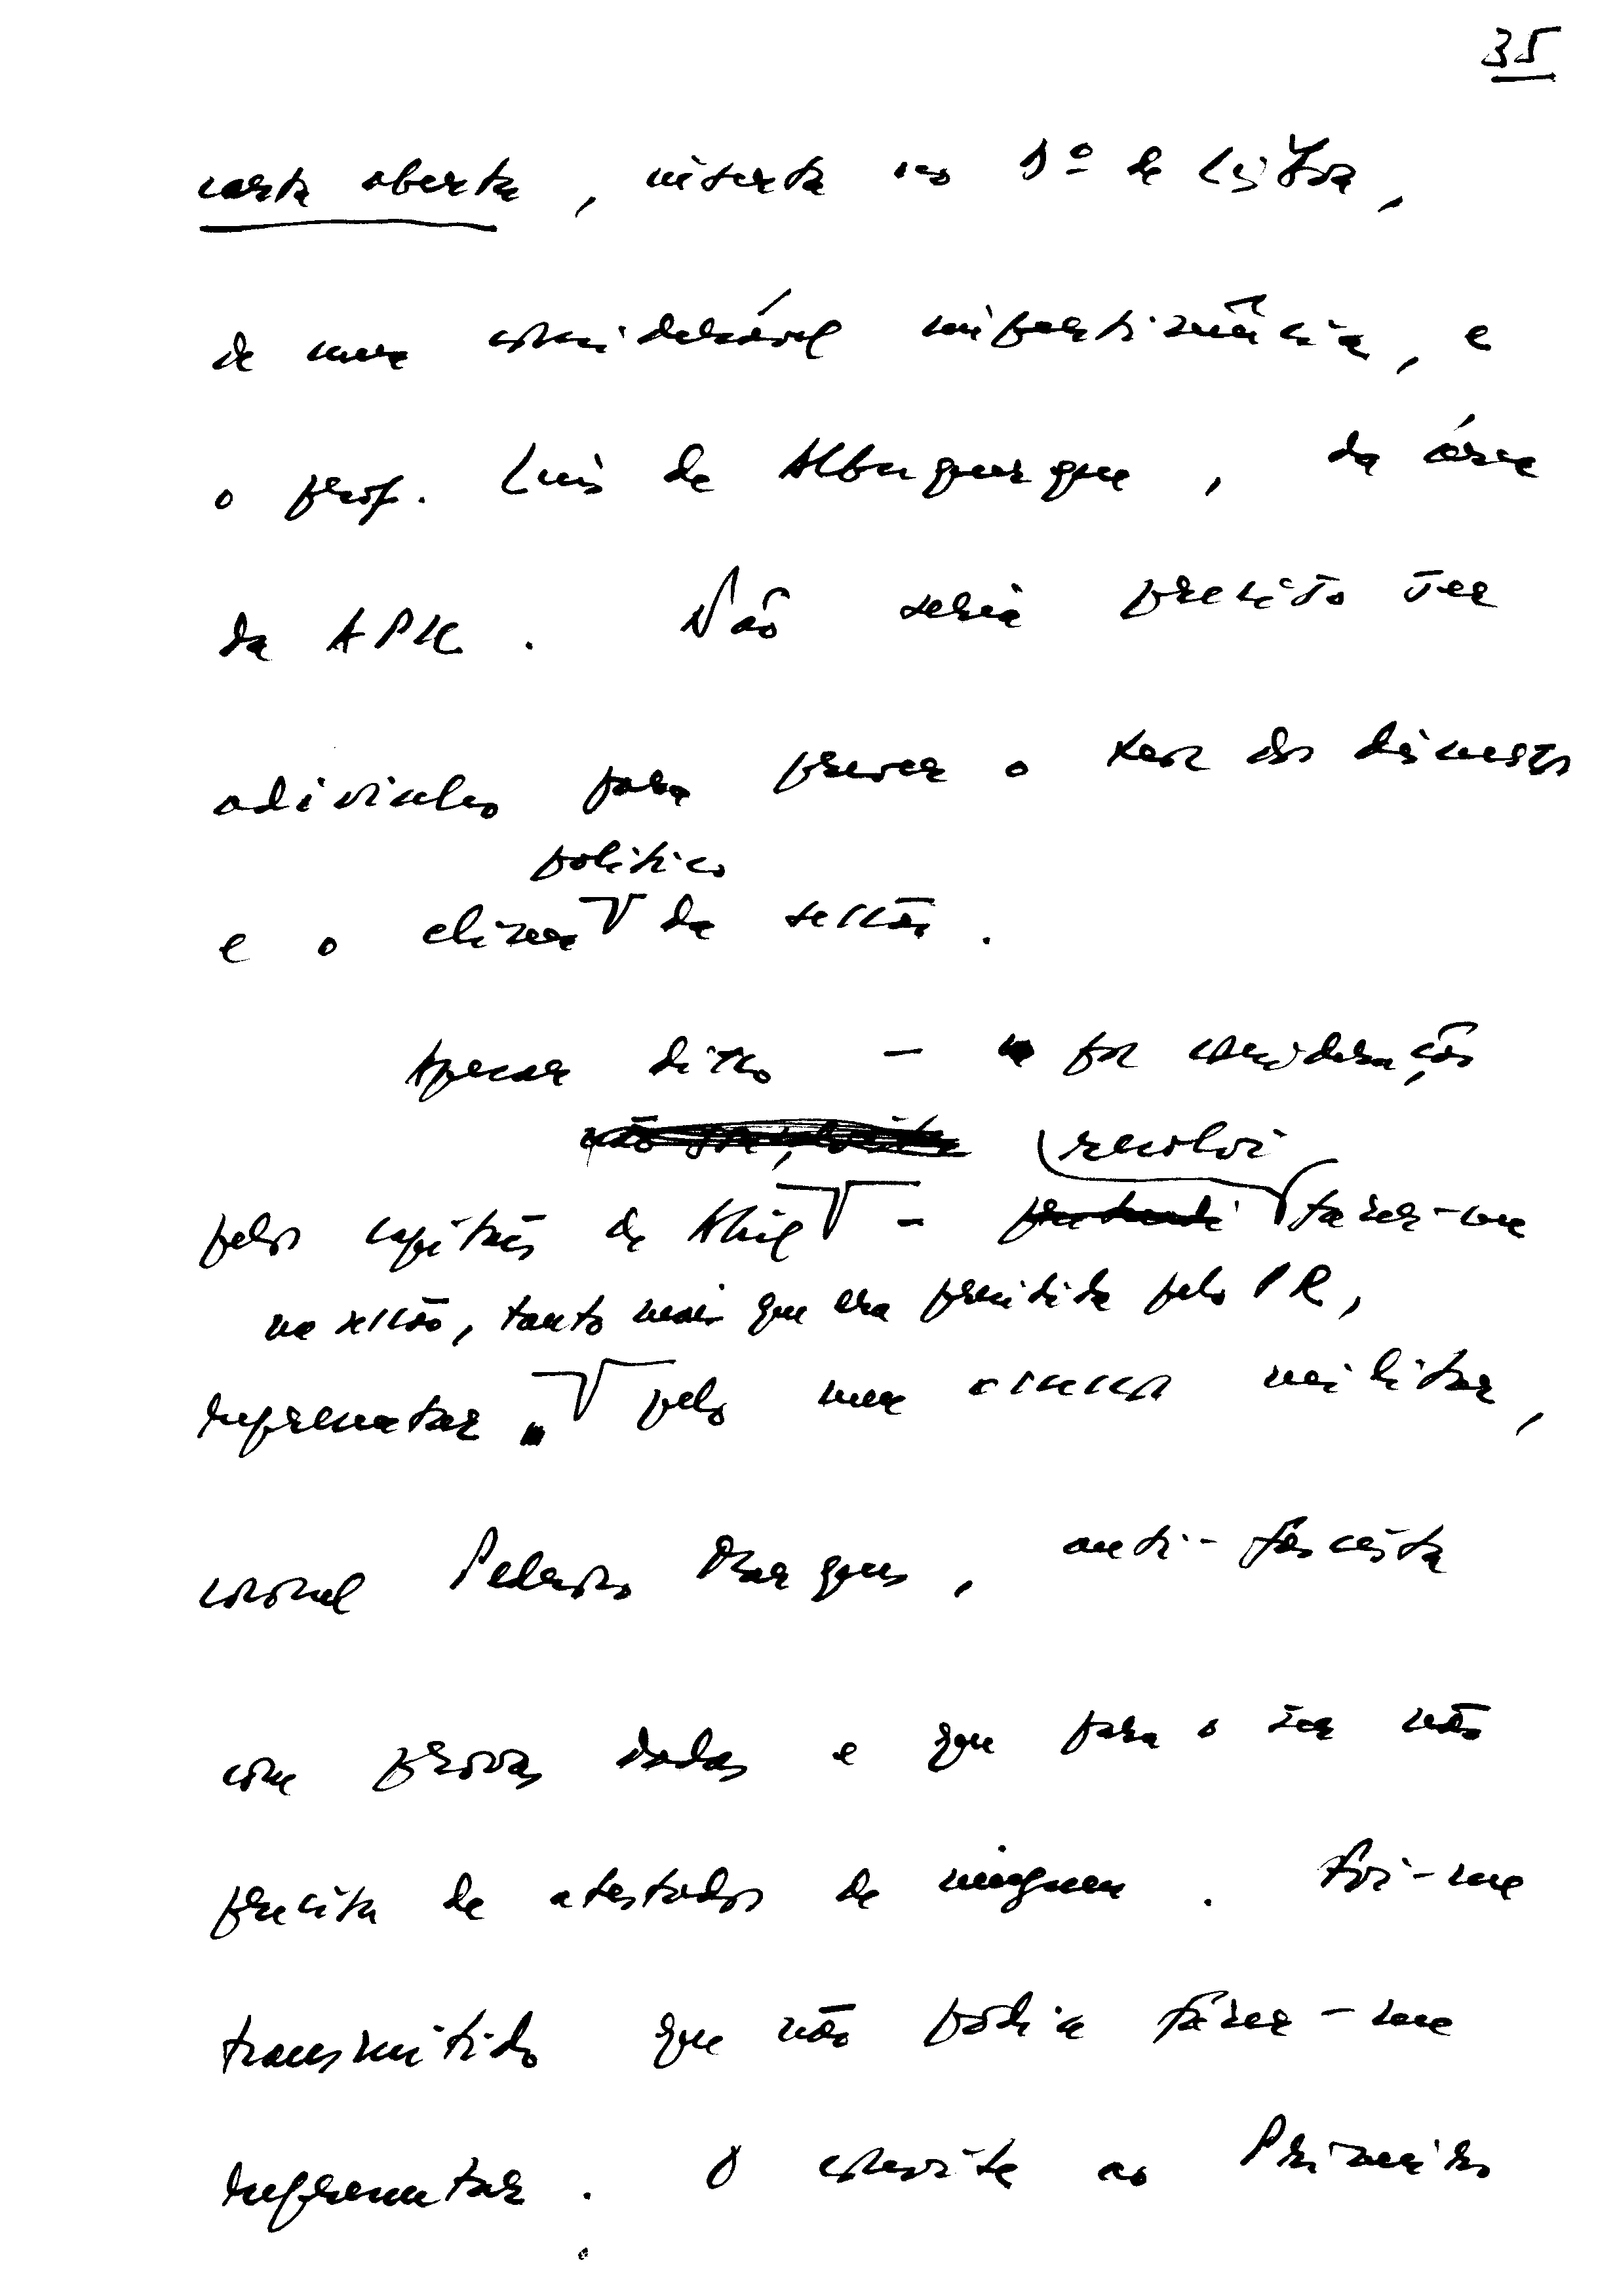 35
carta aberta, inserta no D.º de Lisboa,
de uma considerável impertinência, e
o prof. Luís de Albuquerque, da área
da APU. Não seria preciso ser
adivinho para prever o teor dos discursos
político
e o clima da sessão.
Apesar disso — por consideração
resolvi
pelos capitães de Abril — pretendi fazer-me
na sessão, tanto mais que era presidida pelo PR,
representar pelo meu assessor militar,
coronel Pedroso Marques, anti-fascista
com provas dadas e que para o ser não
precisa de atestados de ninguem. Foi-me
transmitido que não podia fazer-me
representar. O convite ao Primeiro